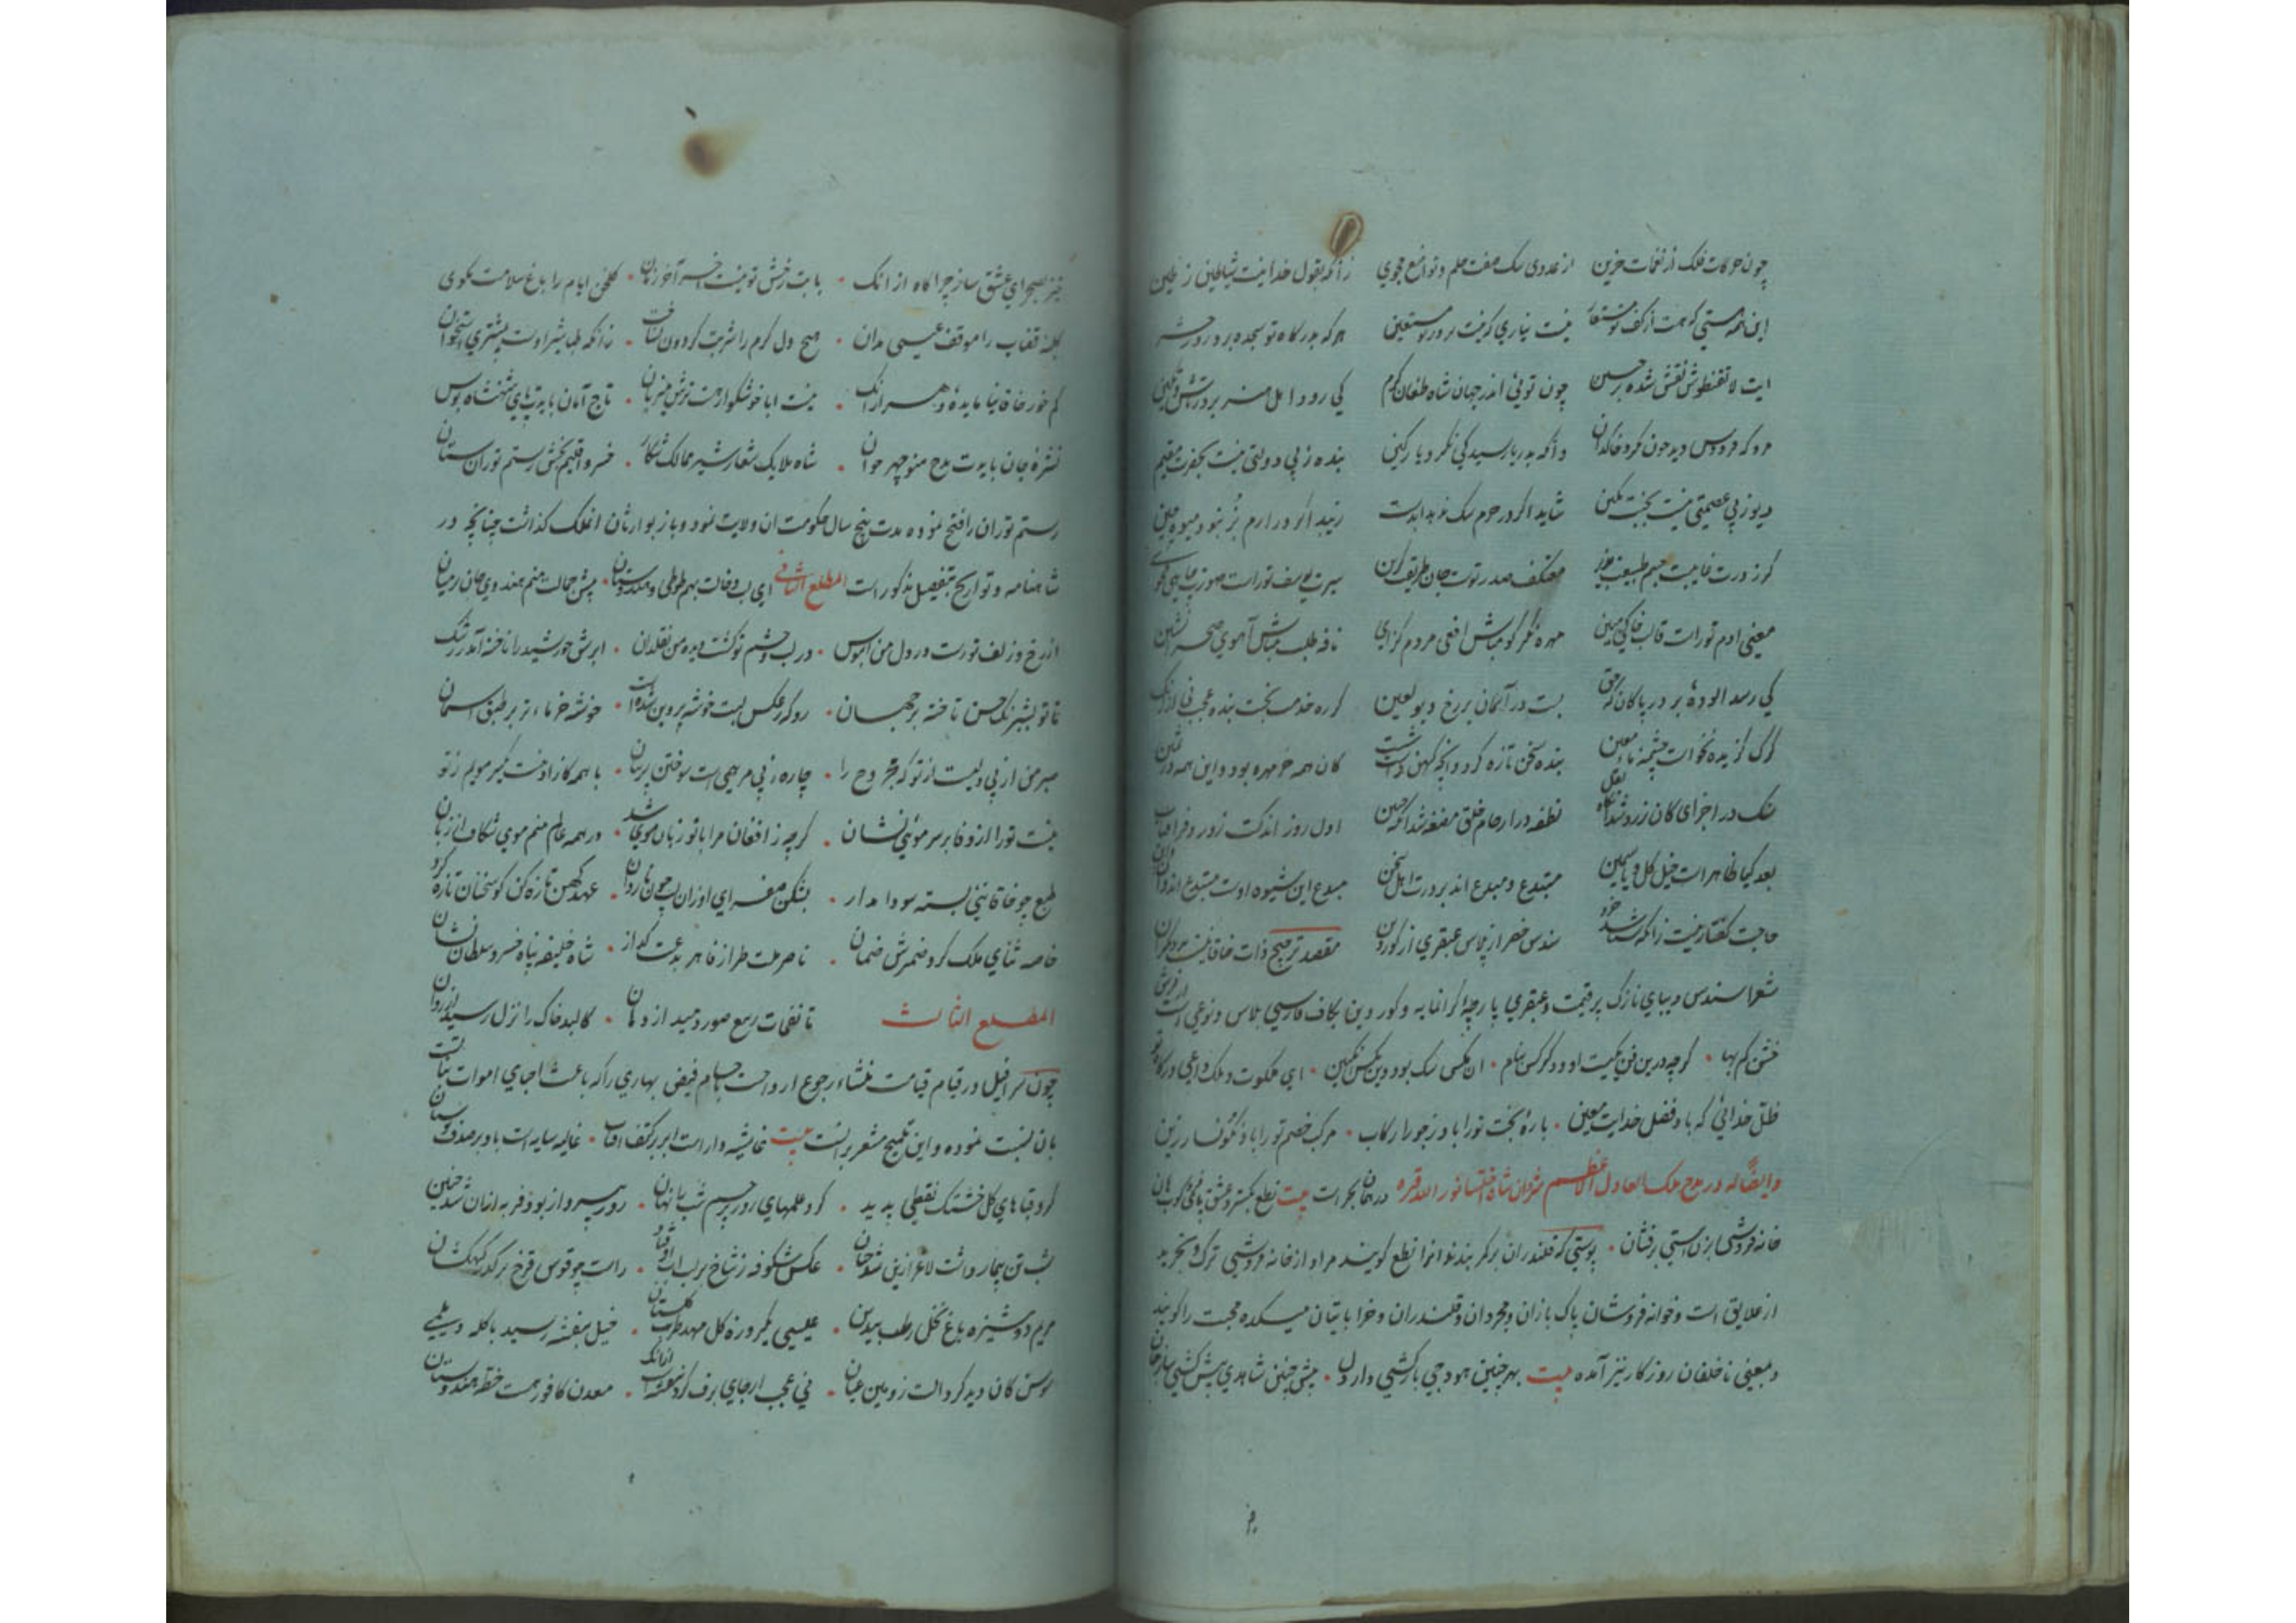 چون حرکات فلک از نغمات حزین از عدوی سگ صفت حلم و تواضع مجوی زانکه بقول خدا نیست شیاطین ز طین
این همه هستی که هست از کف تو مستعار نیست نیازی که نیست بر در تو مستعین هر که بدرگاه تو سجده برد روز حشر
ایت لاتقنطوش نقش شده بر جبین چون توئی اندر جهان شاه طغان کرم کی رود اهل هنر بر در تاش و تکین
مرو که فردوس دید چون نگرد خاکدان وانکه بدریا رسید کی نگرد پارگین بنده ز بی دولتی نیست بحضرت مقیم
دیو ز بی عصمتی نیست بجنت مکین شاید اگر در حرم سگ ندهد آبدست زیبد اگر در ارم بز نبود میوه چین
گر ز درت غایبست جسم طبیعت معتکف صدر تست جان طریقت سیرت یوسف تراست صورت
معنی ادم تو راست قالب خاکی مبین مهره نگر گو مباش افعی مردم گزای نافه طلب گو مباش آهوی صحرا نشین
کی رسد الوده بر در پاکان که حق بست در آسمان بر رخ دیو لعین گر ره خدمت نجست بنده عجب نی ازانک
گرگ گزیده نخواست چشمه ماء معین بنده سخن تازه کرد وانچه کهن داشت شست کان همه خر مهره بود واین همه در ثمین
سنگ در اجزای کان زر شد نطفه در ارحام خلق مضغه شد آنگه جنین اول روز اندکست زور و فر افتاب
بعد گیا ظاهر است خیل گل و یاسمین مبتدع و مبدع اند بر درت اهل سخن مبدع این شیوه اوست مبتدع اند
حاجت گفتار نیست زانکه شناسد خرد سندس خضر از پلاس عبقری از گوردین مقصد ترجیح ذات خاقانیست بر دیگران
شعرا سندس دیبای نازک پر قیمت و عبقری پارچه گرانمایه و گوردین بکاف فارسی پلاس و نوعی است از فرش
خشن کم بها گرچه درین فن یکیست او و دگر کس بنام ان مگس سگ بود وین مگس انگبین ای ملکوت و ملک داعی درگاه تو
ظل خدائی که باد فضل خدایت معین باره بخت تو را باد ز جوزا رکاب مرکب خصم تو را باد نگونسار زین
وایضا له در مدح ملک العادل الاعظم شروان شاه اخلستانور الله قبره در همان بحر است بیت نطع بگستر و عشق پا فرو کوب هان
خانه فروشی بزن آستینی برفشان پوستی که قلندران بر کمر بندند انرا نطع گویند مراد از خانه فروشی ترک و تجرید
از علایق است و خوانه فروشان پاک بازان و مجردان و قلندران و خراباتیان میکده محبت را گویند
و بمعنی ناخلفان روزگار نیز آمده بیت بهر چنین هودجی بارکشی دار دل پیش چنین شاهدی پیشکشی ساز جان
خیز بصحرای عشق ساز چراگاه از انک بابت رخش تو نیست اخر آخر زمان گلخن ایام را باغ سلامت مگوی
کلبه قصاب را موقف عیسی مدان هیچ دل گرم را شربت گردون نساخت زانکه طباشیر اوست بیشتری استخوان
کم خور خاقانیا مایده دهر از انک نیست ابا خوشگوار هست ترش میزبان تاج آمان بایدت پای شهنشاه بوس
نشره جان بایدت مدح منوچهر خوان شاه ملایک شعار شیر ممالک شکار خسرو اقلیم بخش رستم توران ستان
رستم توران را فتح نموده مدت پنج سال حکومت ان ولایت نمود و باز بوارثان ان ملک گذاشت چنانچه در
شاهنامه و تواریخ بتفصیل مذکور است المطلع الثانی ای لب و خالت بهم طوطی و هندوستان پیش جمالت منم هندوی جان رمیان
از رخ و زلف تو رست در دل من ابنوس در لب و چشم تو گشت دیده من ابرش خورشید را ناخنه آمد ز رشک
تا تو بشبرنگ حسن تاختی بر جهان روکه ز عکس لبت خوشه پروین شد است خوشه خرمای تر بر طبق اسمان
صبر من از بیدلیست از تو که مجروح را چاره ز بی مرهمی است سوختن پرنیان با همه کازاد نیست گیر مویم ز تو
نیست تو را از وفا بر سر موئی نشان گرچه ز افغان مرا با تو زبان موی شد در همه عالم منم موی شکاف از زبان
طبع چو خاقانئی بسته سودا مدار بشکن صفرای او زان لب چون ناردان عهد کهن تازه کن کو سخنان تازه کرد
خاصه ثنای ملک کرد ضمیرش ضمان ناصر ملت طراز قاهر بدعت گداز شاه خلیفه پناه خسرو سلطان نشان
المطلع الثالث تا نفخات ربیع صور دمید از دهان کالبد خاک را نزل رسید از روان
چون سرافیل در قیام قیامت منشاء رجوع ارواحست باجسام فیض بهاری را که باعث احیای اموات نباتست
بان نسبت نموده و این تلمیح مشعر بر انست بیت غاشیه دار است ابر بر کتف افتاب غالیه سایست باد بر صدف بوستان
کرد قباهای گل خشتک نفطی پدید کرد علمهای روز پرچم شب را نهان روز بپرواز بود فربه ازان شد چنین
شب تن بیمار داشت لاغر ازین شد چنان عکس شکوفه ز شاخ بر لب اب اوفتاد راست چو قوس قزح برگذر کهکشان
مریم دوشیزه باغ نخل رطب بیدبن عیسی یکروزه گل مهد طرب گلستان خیل بنفشه رسید با کله دیلمی
سوسن کان دید کرد الت زوبین عیان نی عجب ار جای برف گرد بنفشه است ازانک معدن کافور هست خطه هندوستان